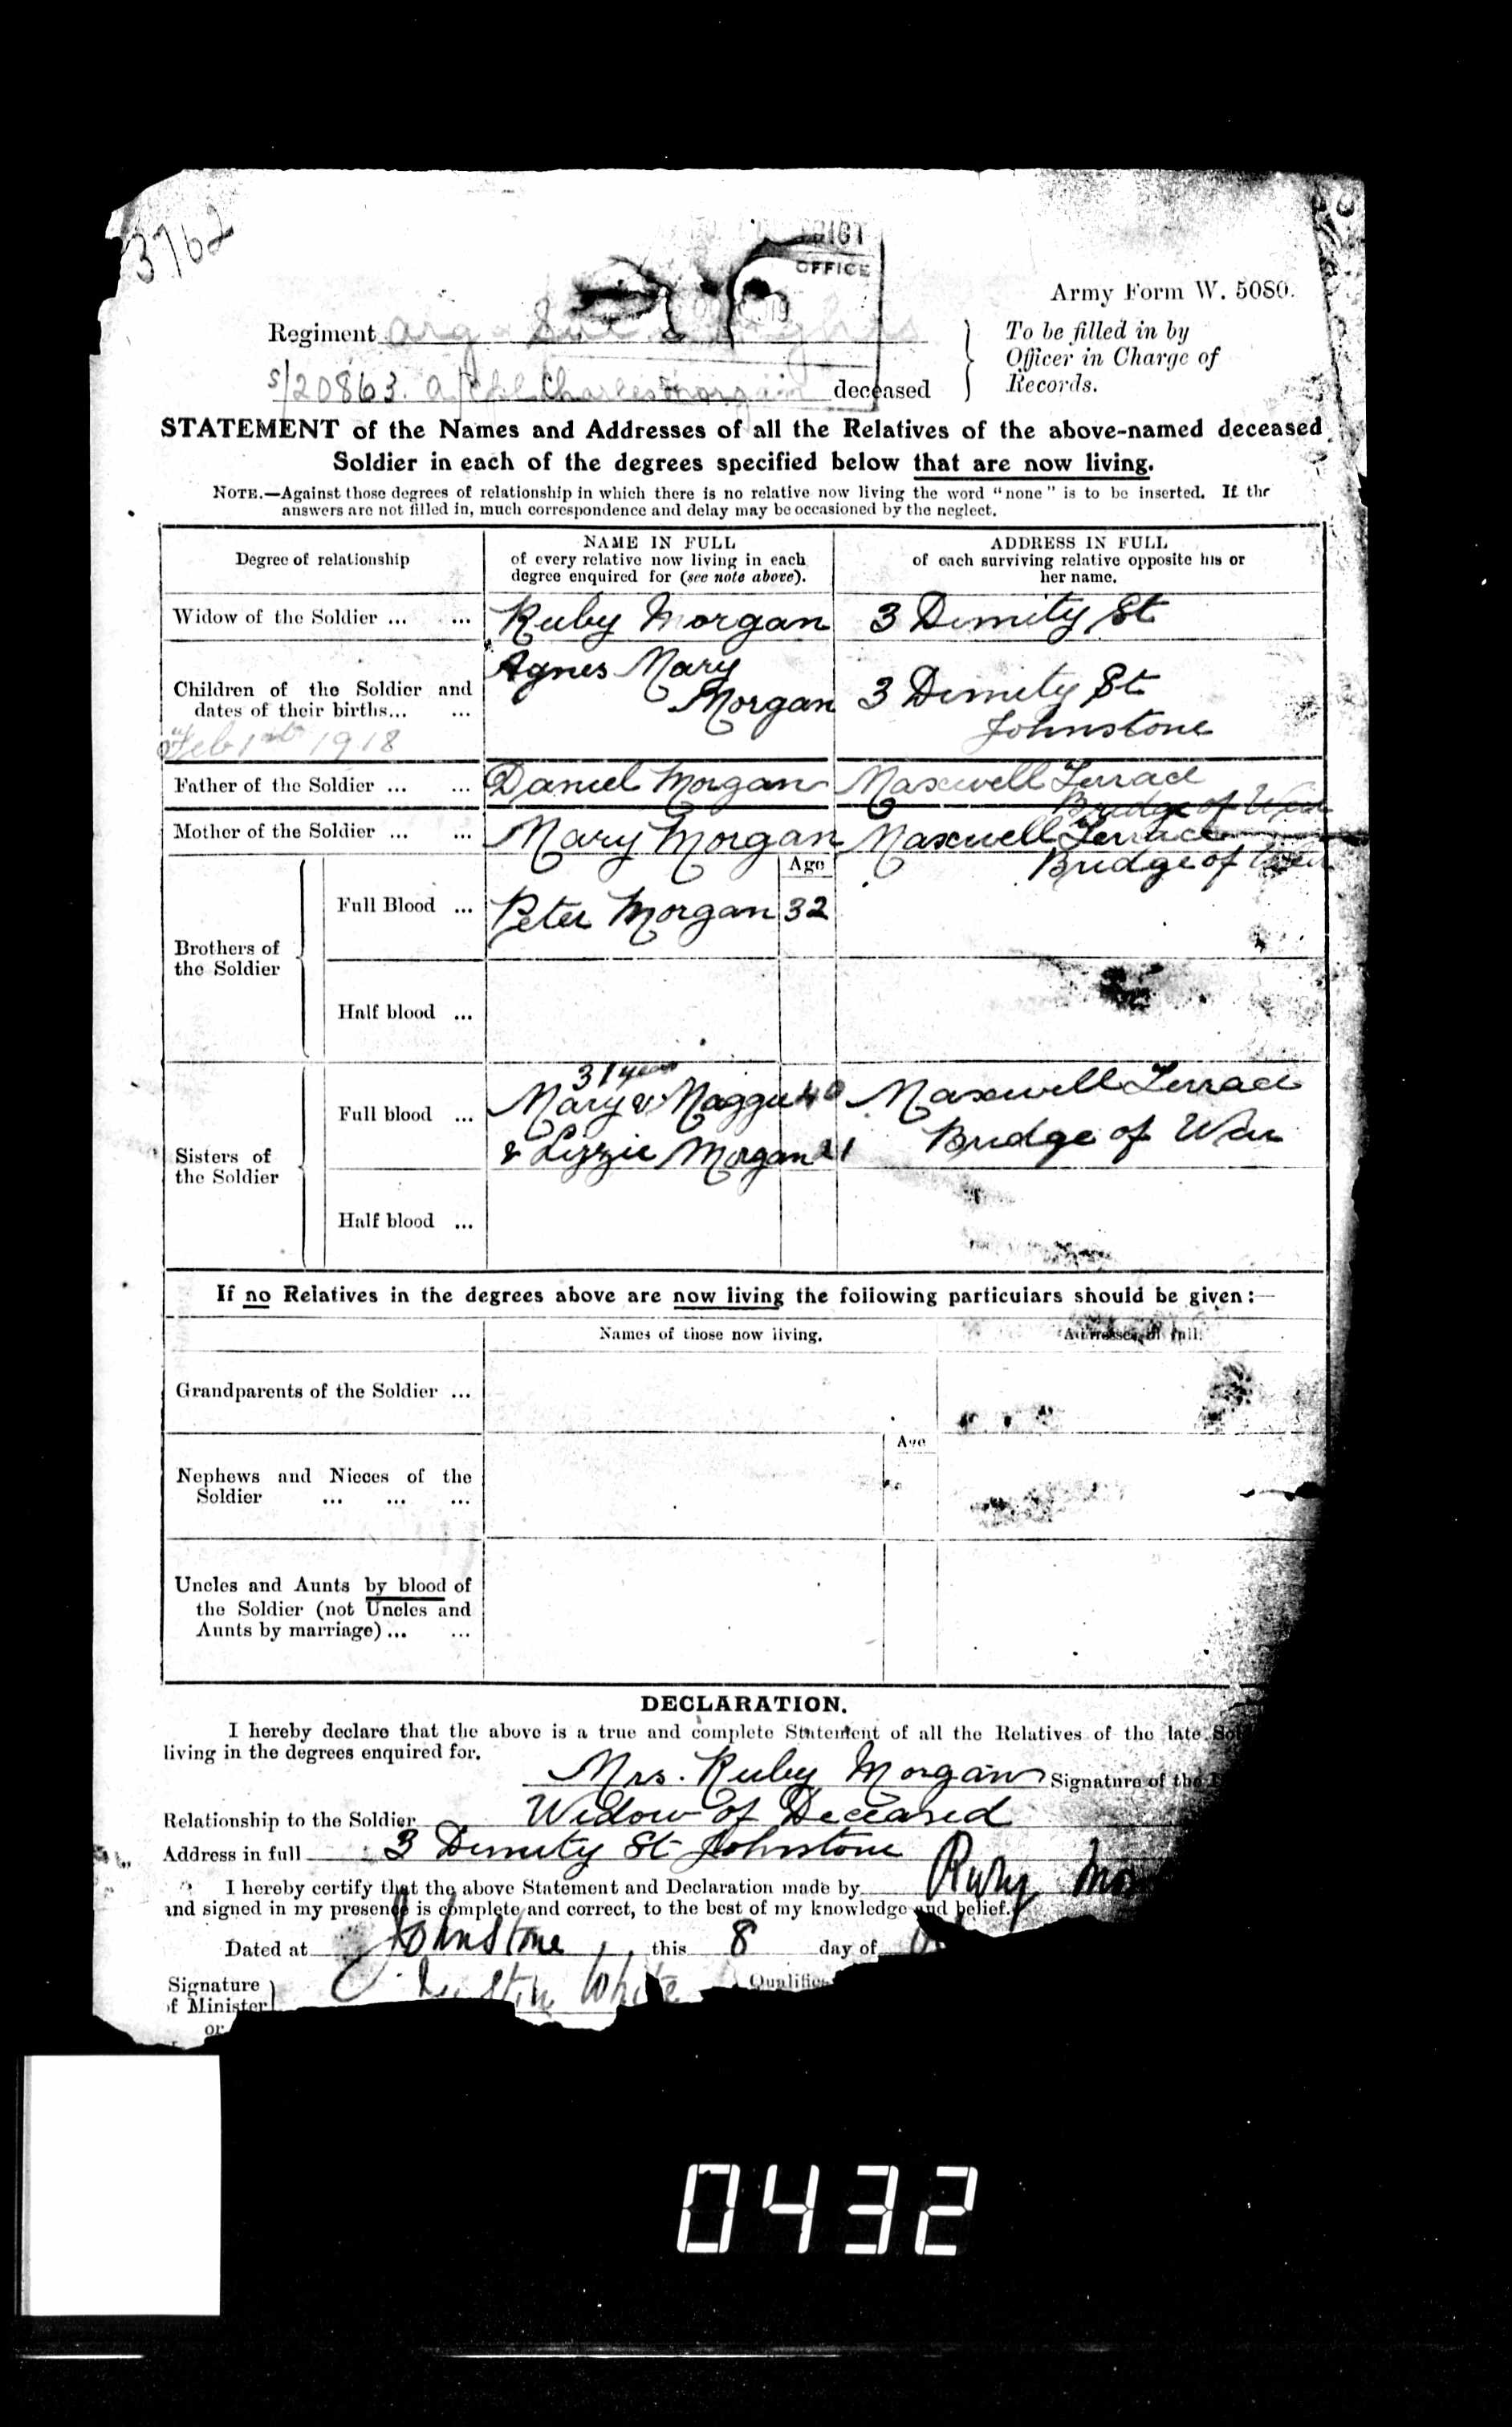 3762
OFFICE
Army Form W. 5080.
Regiment Arg
To be filled in by
Officer in Charge of
Records.
S/20863. A/Cpl Charles Morgan deceased
STATEMENT of the Names and Addresses of all the Relatives of the above-named deceased
Soldier in each of the degrees specified below that are now living.
NOTE.—Against those degrees of relationship in which there is no relative now living the word "none" is to be inserted. If the
answers are not filled in, much correspondence and delay may be occasioned by the neglect.
Degree of relationship
NAME IN FULL
of every relative now living in each
degree enquired for (see note above).
ADDRESS IN FULL
of each surviving relative opposite his or
her name.
Widow of the Soldier ... ... Ruby Morgan 3 Dimity St
Children of the Soldier and
dates of their births... ...
Feb 1st 1918
Agnes Mary
Morgan
3 Dimity St
Johnstone
Father of the Soldier ... ... Daniel Morgan Maxwell Terrace
Bridge of Weir
Mother of the Soldier ... ... Mary Morgan Maxwell Terrace
Bridge of Weir
Age
Brothers of
the Soldier
Full Blood ... Peter Morgan 32
Half blood ...
Sisters of
the Soldier
31 years
Full blood ... Mary & Maggie 40 Maxwell Terrace
& Lizzie Morgan 21 Bridge of Weir
Half blood ...
If no Relatives in the degrees above are now living the following particulars should be given:—
Names of those now living.
Addresses in full.
Grandparents of the Soldier ...
Age
Nephews and Nieces of the
Soldier ... ... ...
Uncles and Aunts by blood of
the Soldier (not Uncles and
Aunts by marriage) ... ...
DECLARATION.
I hereby declare that the above is a true and complete Statement of all the Relatives of the late
living in the degrees enquired for.
Mrs. Ruby Morgan Signature of the
Relationship to the Soldier Widow of Deceased
Address in full 3 Dimity St Johnstone
I hereby certify that the above Statement and Declaration made by Ruby
and signed in my presence is complete and correct, to the best of my knowledge and belief.
Dated at Johnstone, this 8 day of
Signature
of Minister
White
or
0432